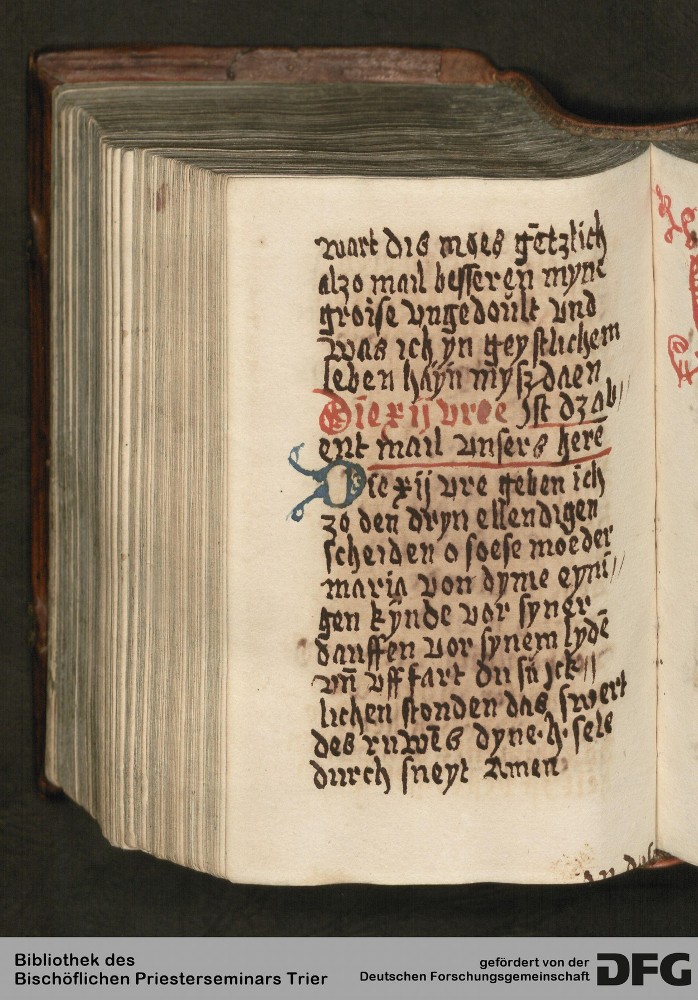 wart dis moes gētzlich
alzo mail besseren myne
groise vngedoult vnd
was ich yn geystlichem
leben hayn mysz daen
Die xij vree Jst dz ab//
ent mail vnsers here
Die xij vre geben ich
zo den dryn ellendigen
scheiden o soese moeder
maria von dyme eyni//
gen kynde vor syner
dauffen vor synem lydē
vn̄ vffart du sū jck//
lichen stonden das swert
des ruwēs dyne .h. sele
durch sneyt Amen
Bibliothek des
Bischöflichen Priesterseminars Trier
gefördert von der
Deutschen Forschungsgemeinschaft
DFG